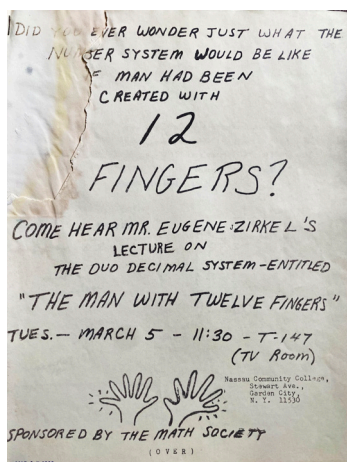 DID YOU EVER WONDER JUST WHAT THE
NUMBER SYSTEM WOULD BE LIKE
IF MAN HAD BEEN
CREATED WITH
12
FINGERS?
COME HEAR MR. EUGENE ZIRKEL'S
LECTURE ON
THE DUO DECIMAL SYSTEM-ENTITLED
"THE MAN WITH TWELVE FINGERS"
TUES. - MARCH 5 - 11:30 - T-147
(TV ROOM)
Nassau Community College,
Stewart Ave.,
Garden City,
N. Y. 11530
SPONSORED BY THE MATH SOCIETY
(OVER)